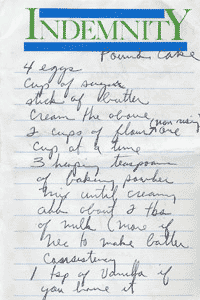 INDEMNITY
Pound Cake
4 eggs
cup of sugar
stick of butter
Cream the above
2 cups of flour (non rising) one
cup at a time
3 heaping teaspoons
of baking powder
mix until creamy
add about 2 tbs
of milk (more if
nec to make batter
consistency
1 tsp of vanilla if
you have it